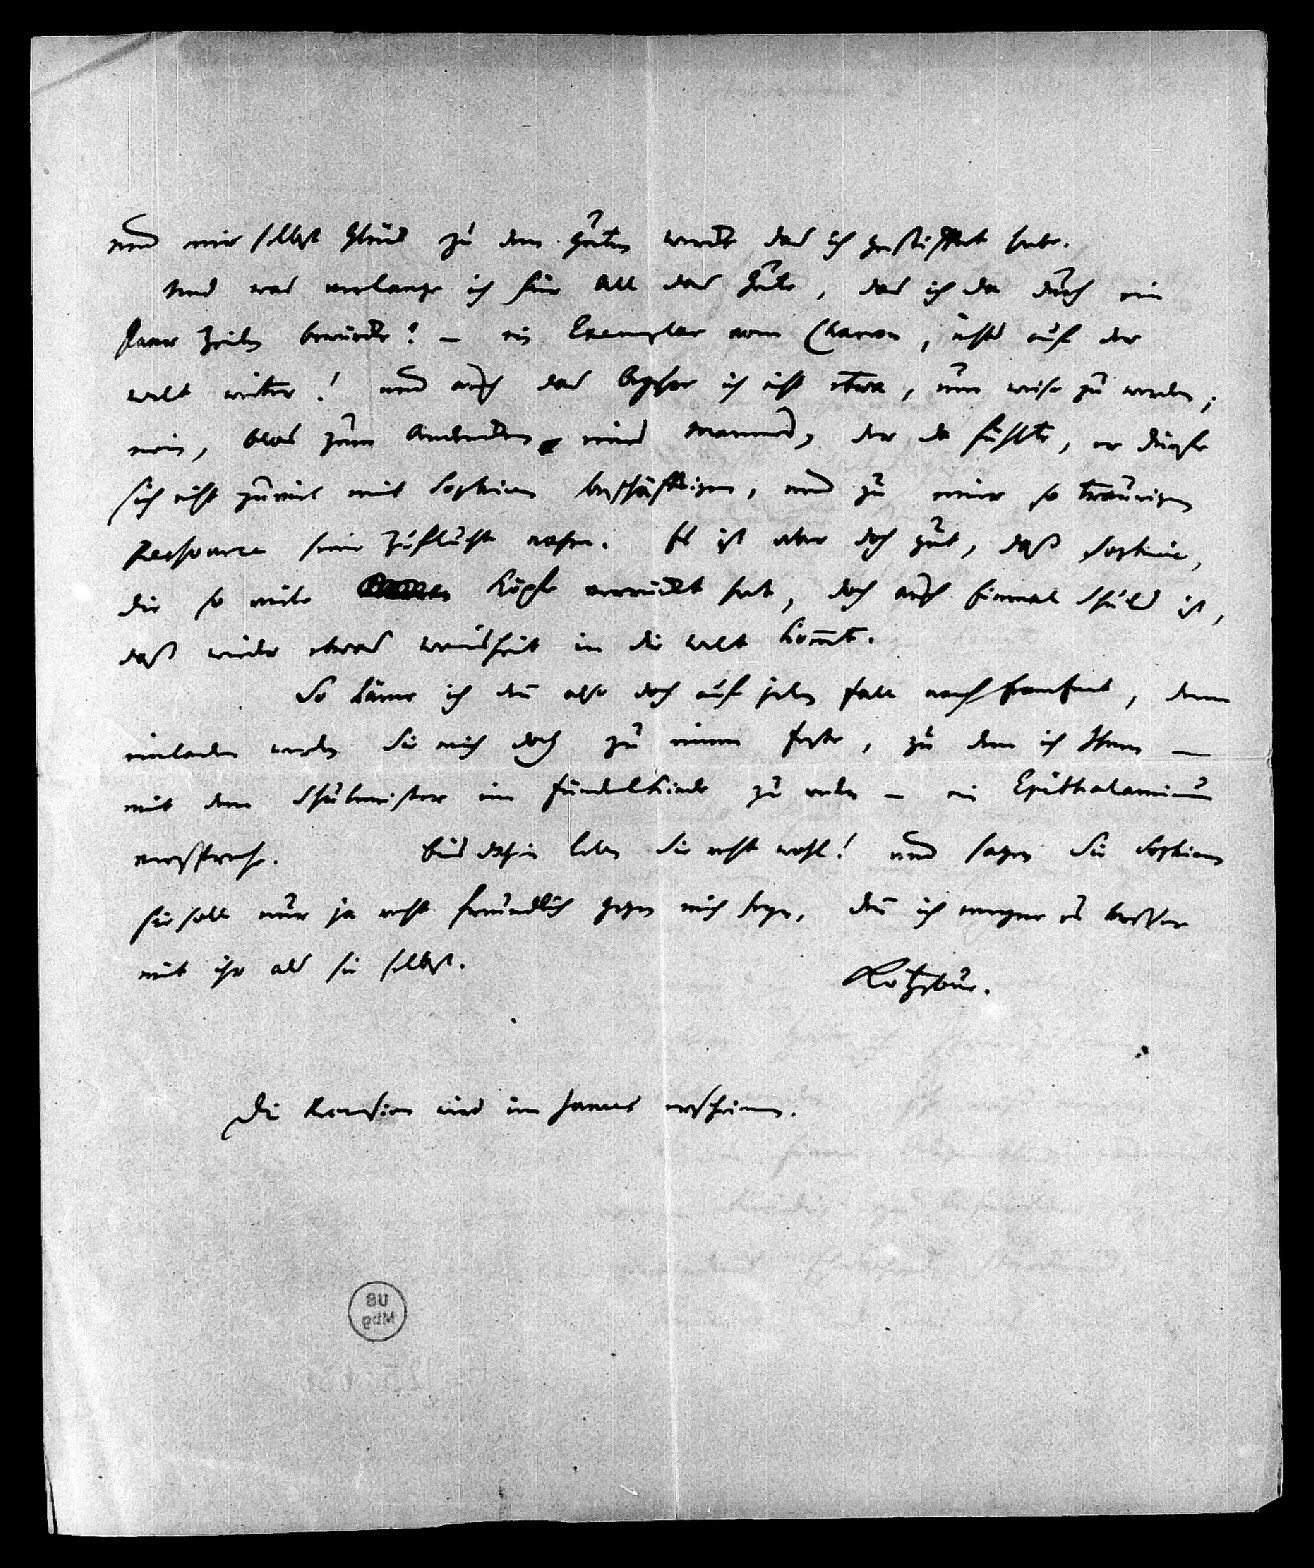 und mir selbst Glück zu dem Guten werde das ich gestiftet habe.
Und was verlange ich für all das Gute, das ich da durch ein
Paar Zeilen bewürke? — ein Exemplar vom Charon, nichts auf der
Welt weiter! und auch das begehre ich nicht etwa, um weise zu werden;
nein, blos zum Andenken eines Mannes, der da fühlte, er dürfe
sich nicht zuviel mit Sophien beschäftigen, und zu einer so traurigen
Ressource seine Zuflucht nahm. Es ist aber doch gut, daß Sophie,
die so viele Köpfe verrückt hat, doch auch einmal Schuld ist,
daß wieder etwas Weisheit in die Welt kommt.
So käme ich den̅ also doch auf jeden Fall nach Frankfurt, denn
einladen werden Sie mich doch zu einem Feste, zu dem ich Ihnen —
mit dem Schulmeister im Findelkinde zu reden — ein Epithalamium
verspreche. Bis dahin leben Sie recht wohl! und sagen Sie Sophien
sie soll nur ja recht freundlich gegen mich seyn, den̅ ich meyne es besser
mit ihr als sie selbst.
Kotzebue.
Die Recension wird im Janus erscheinen.
UB
Mbg